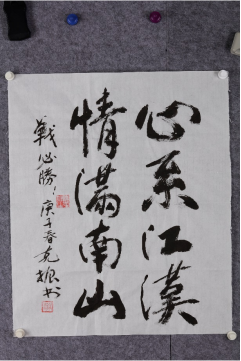 心系江漢
情滿南山
戰必勝！庚子春克振书